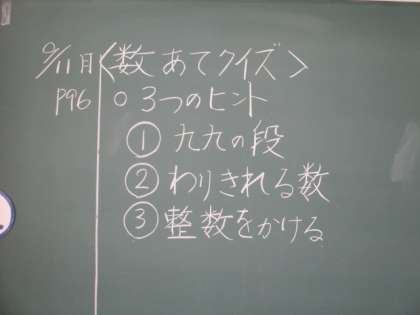 9/11月 〈数あてクイズ〉
P96 ○3つのヒント
①九九の段
②わりきれる数
③整数をかける